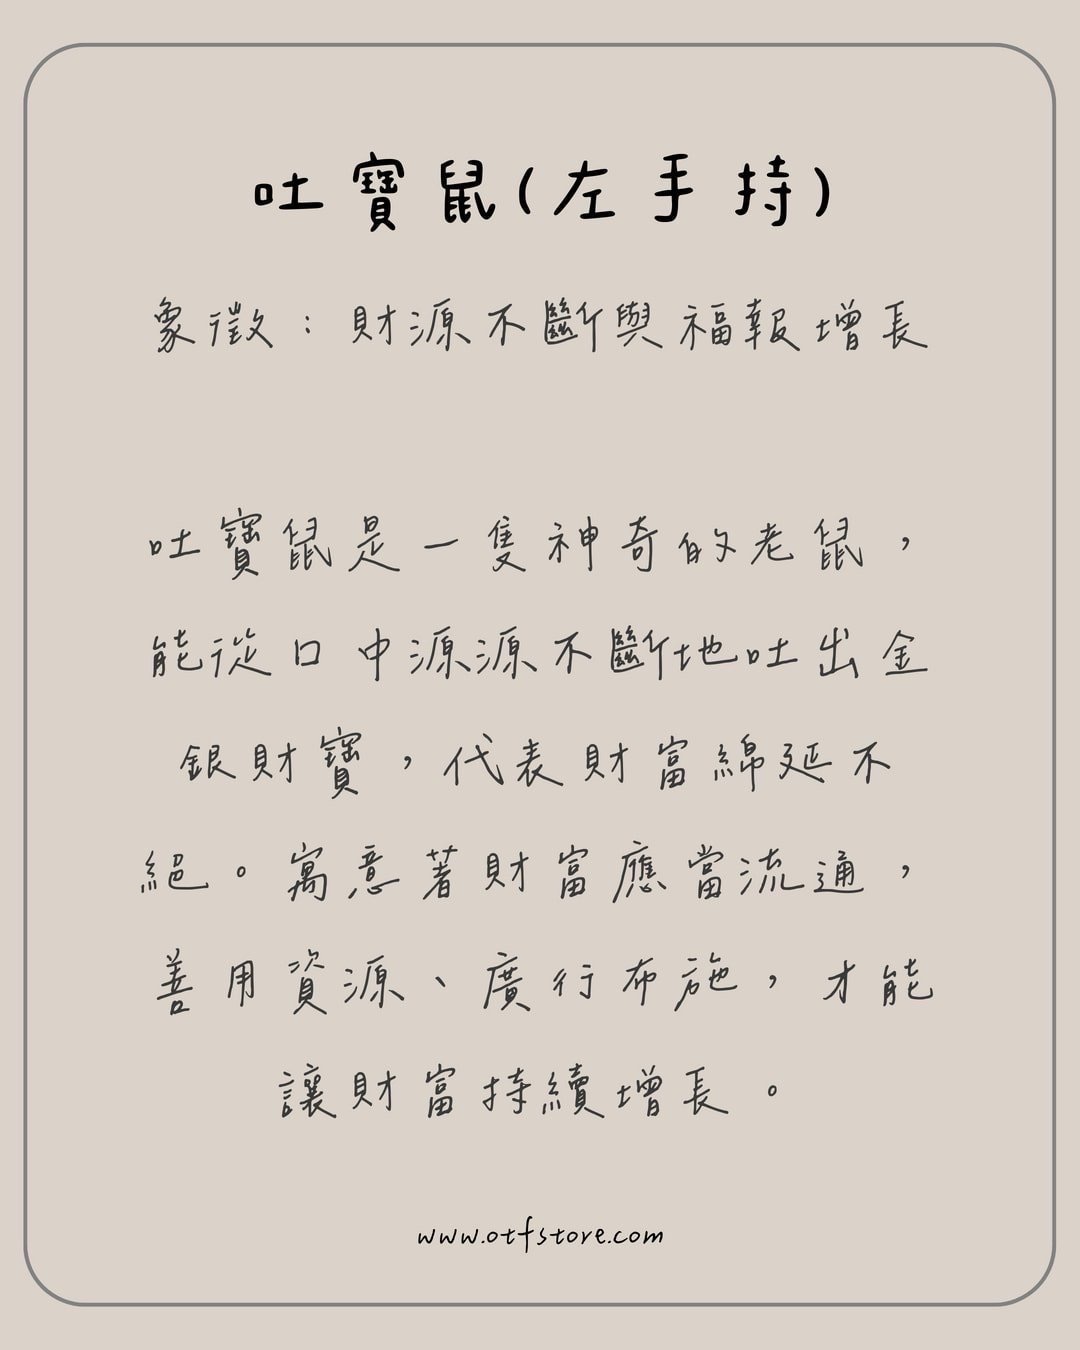 吐寶鼠(左手持)
象徵：財源不斷與福報增長
吐寶鼠是一隻神奇的老鼠，
能從口中源源不斷地吐出金
銀財寶，代表財富綿延不
絕。寓意著財富應當流通，
善用資源、廣行布施，才能
讓財富持續增長。
www.otfstore.com